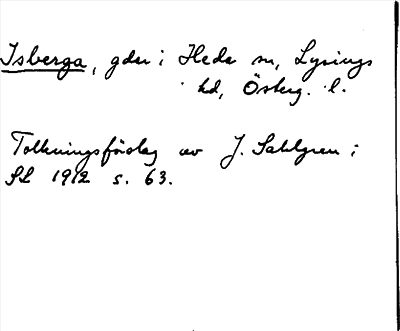 Isberga, gdn i Heda sn, Lysings
hd, Österg. l.
Tolkningsförslag av J. Sahlgren i
SL 1912 s. 63.